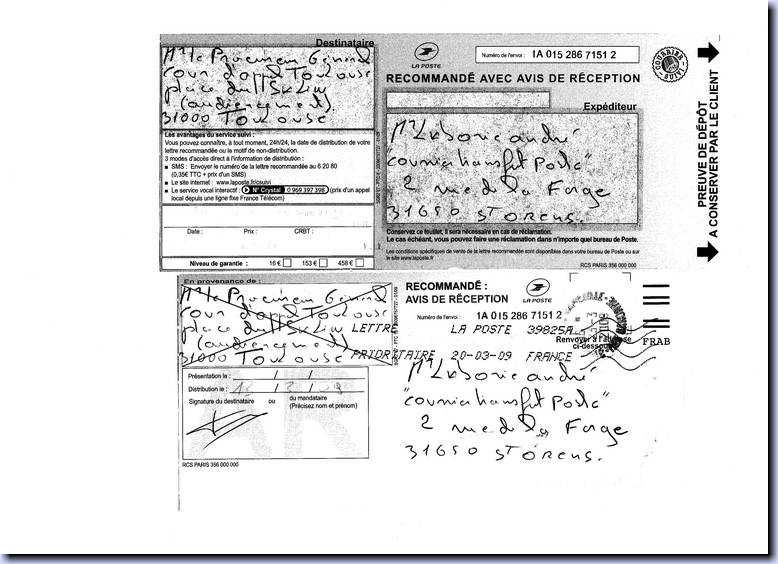 Destinataire
Mr le Procureur Général
cour d'appel Toulouse
place du Salin
(audiencement)
31000 Toulouse
Les avantages du service suivi :
Vous pouvez connaître, à tout moment, 24h/24, la date de distribution de votre
lettre recommandée ou le motif de non-distribution.
3 modes d'accès direct à l'information de distribution :
SMS : Envoyer le numéro de la lettre recommandée au 6 20 80
(0,35€ TTC + prix d'un SMS)
Le site internet : www.laposte.fr/csuivi
Le service vocal interactif : N° Crystal 0 969 397 398 (prix d'un appel
local depuis une ligne fixe France Télécom)
Date : Prix : CRBT :
Niveau de garantie : 16 € 153 € 458 €
LA POSTE
Numéro de l'envoi : 1A 015 286 7151 2
RECOMMANDÉ AVEC AVIS DE RÉCEPTION
Expéditeur
Mr Laborie andré
"courrier transfert Poste"
2 rue de la Forge
31650 St ORENS.
Conservez ce feuillet, il sera nécessaire en cas de réclamation.
Le cas échéant, vous pouvez faire une réclamation dans n'importe quel bureau de Poste.
Les conditions spécifiques de vente de la lettre recommandée sont disponibles dans votre bureau de Poste ou sur
le site www.laposte.fr
RCS PARIS 356 000 000
COURRIER SUIVI
PREUVE DE DÉPÔT
A CONSERVER PAR LE CLIENT
En provenance de :
Mr le Procureur Général
cour d'appel Toulouse
place du Salin
(audiencement)
31000 Toulouse
LETTRE
PRIORITAIRE
RECOMMANDÉ :
AVIS DE RÉCEPTION
LA POSTE
Numéro de l'envoi : 1A 015 286 7151 2
LA POSTE 39825A
20-03-09 FRANCE
Renvoyer à l'adresse
ci-dessous
FRAB
Mr Laborie andré
"courrier transfert Poste"
2 rue de la Forge
31650 St ORENS.
Présentation le : / /
Distribution le : / /
Signature du destinataire ou du mandataire
(Précisez nom et prénom)
AR
RCS PARIS 356 000 000